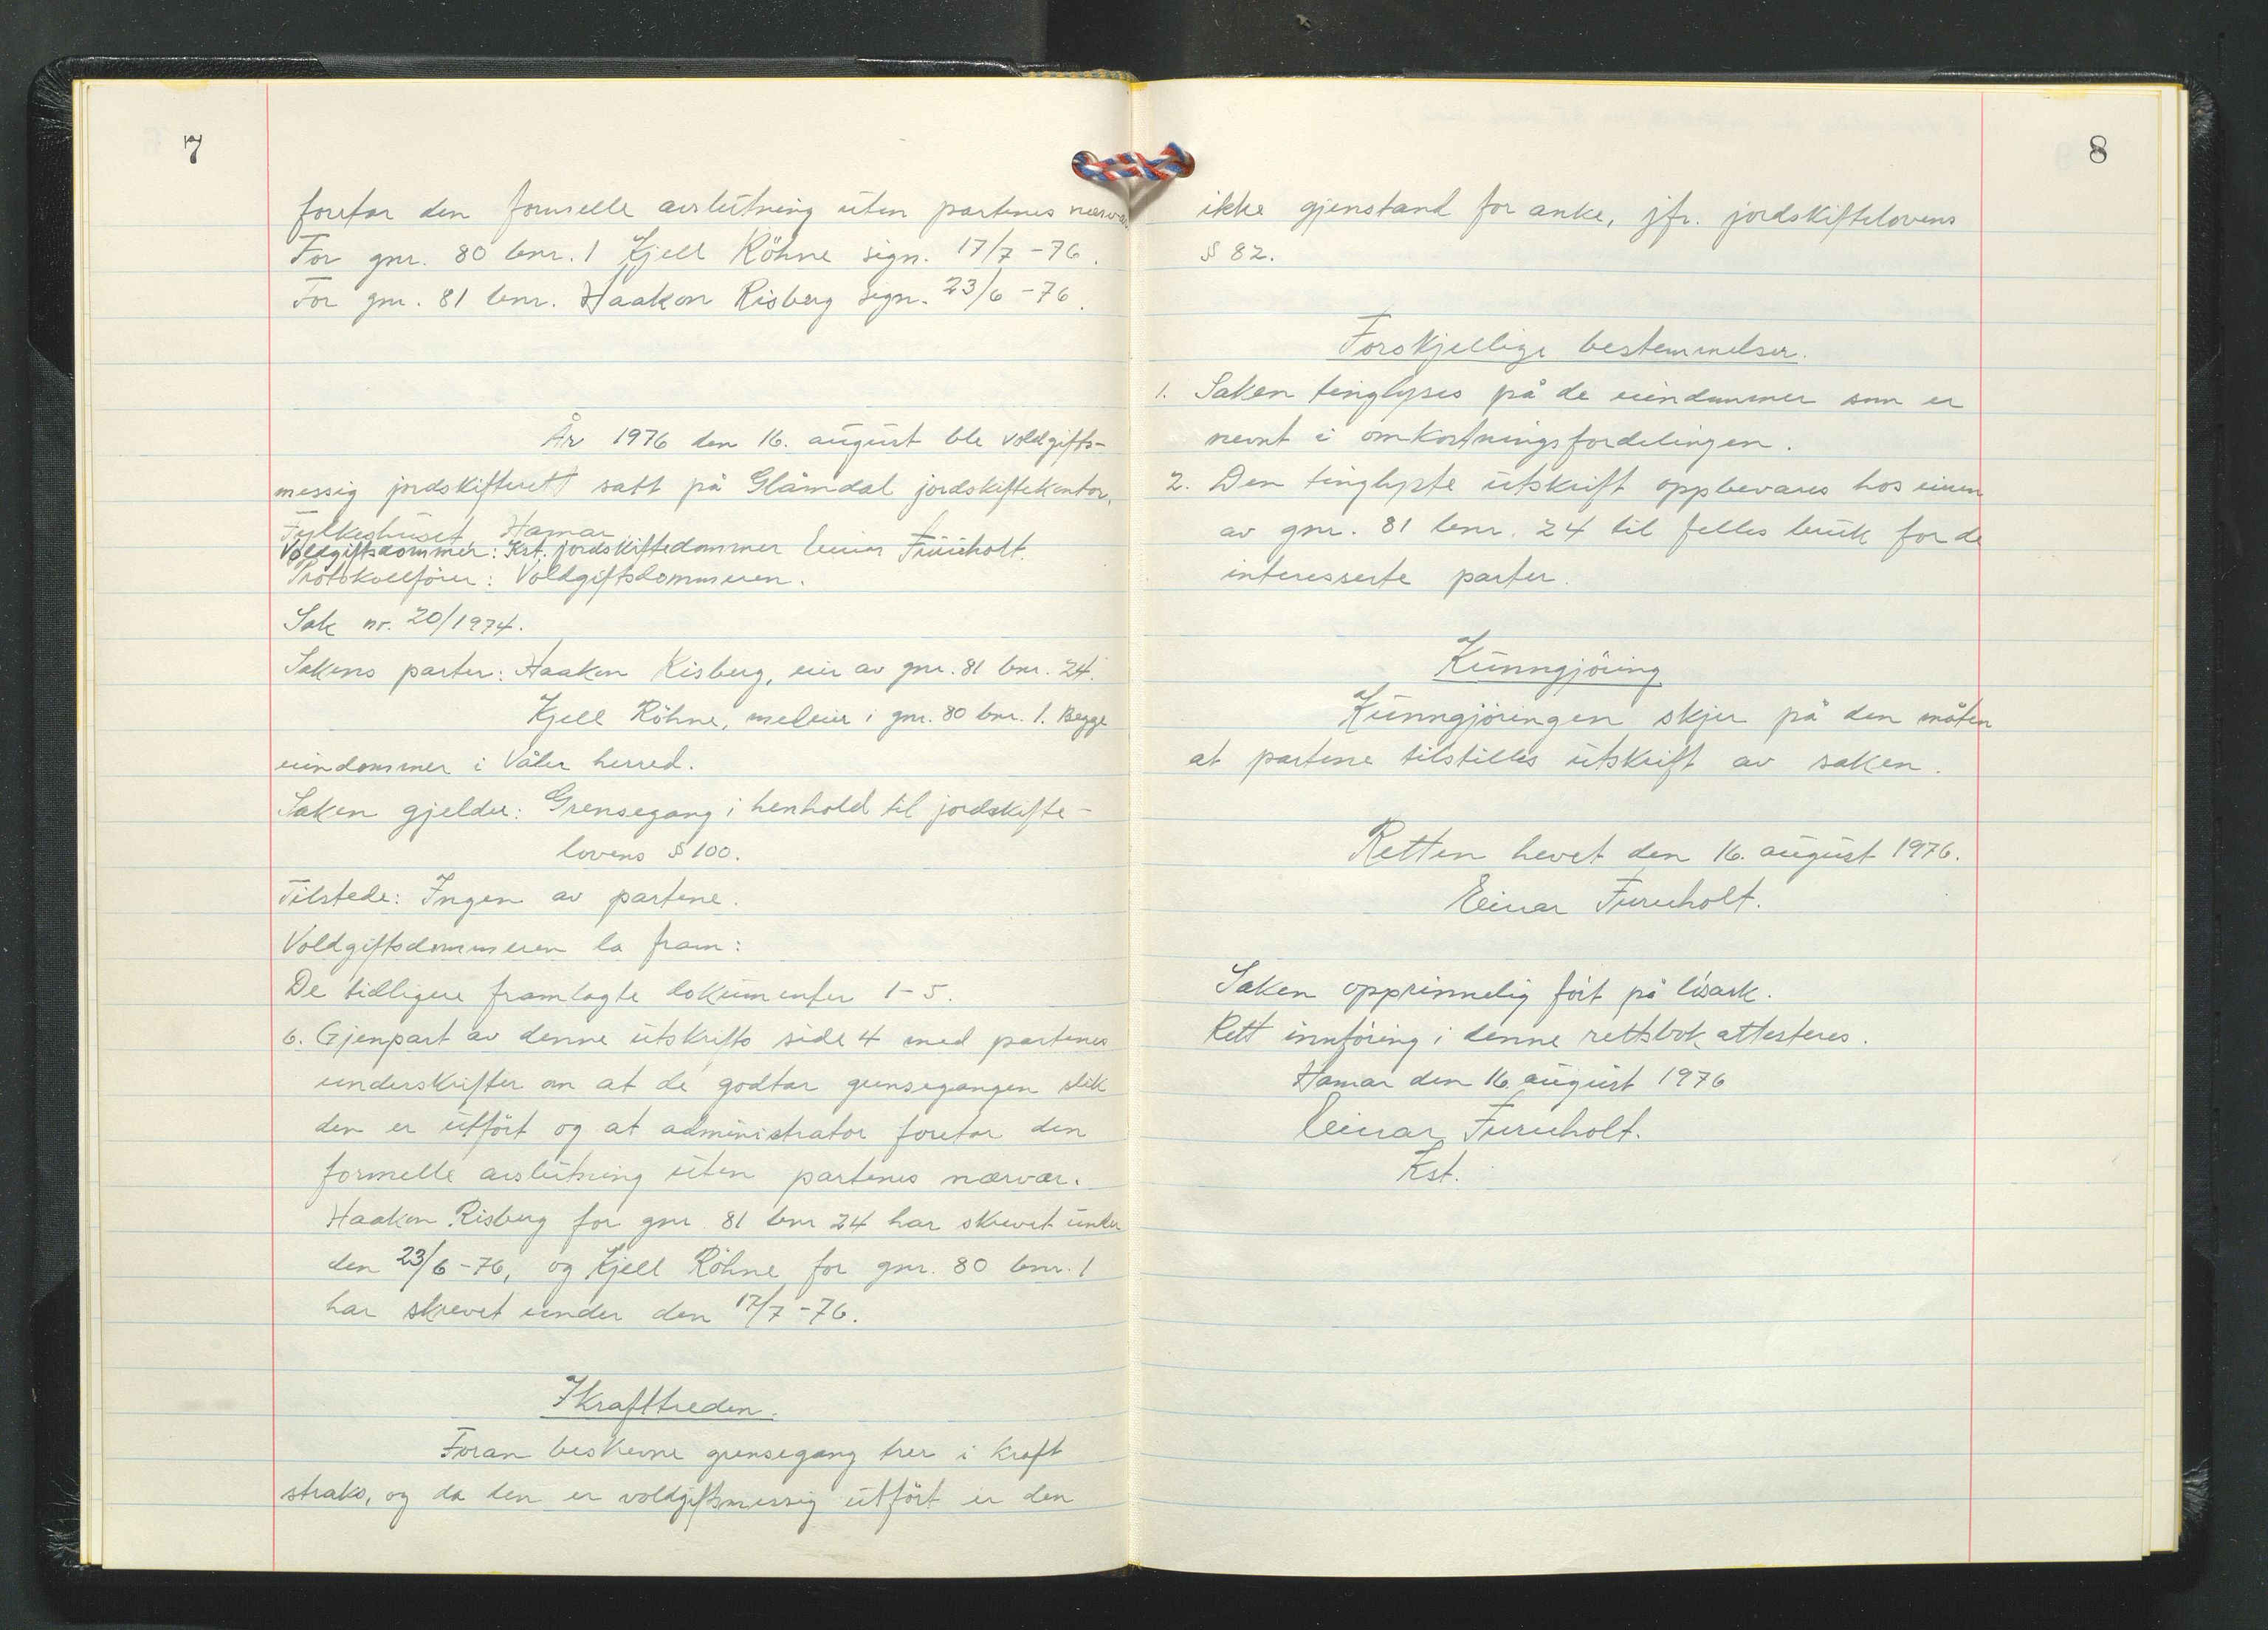 7
foretar den formelle avslutning uten partenes nærvær
For gnr. 80 bnr. 1 Kjell Röhne sign. 17/7 -76.
For gnr. 81 bnr. Haakon Risberg sign. 23/6 -76.
År 1976 den 16. august ble voldgifts-
messig jordskifterett satt på Glåmdal jordskiftekontor,
Fylkeshuset Hamar
Voldgiftsdommer: Kst. jordskiftedommer Einar Furuholt.
Protokollförer: Voldgiftsdommeren.
Sak nr. 20/1974.
Sakens parter: Haakon Risberg, eier av gnr. 81 bnr. 24.
Kjell Röhne, medeier i gnr. 80 bnr. 1. Begge
eiendommer i Våler herred.
Saken gjelder: Grensegang i henhold til jordskifte-
lovens § 100.
Tilstede: Ingen av partene.
Voldgiftsdommeren la fram:
De tidligere framlagte dokumenter 1-5.
6. Gjenpart av denne utskrifts side 4 med partenes
underskrifter om at de godtar grensegangen slik
den er utfört og at administrator foretar den
formelle avslutning uten partenes nærvær.
Haakon Risberg for gnr. 81 bnr 24 har skrevet under
den 23/6-76, og Kjell Röhne for gnr. 80 bnr. 1
har skrevet under den 17/7 -76.
Ikrafttreden.
Foran beskrevne grensegang trer i kraft
straks, og da den er voldgiftsmessig utfört er den
8
ikke gjenstand for anke, jfr. jordskiftelovens
§ 82.
Forskjellige bestemmelser.
1. Saken tinglyses på de eiendommer som er
nevnt i omkostningsfordelingen.
2. Den tinglyste utskrift oppbevares hos eieren
av gnr. 81 bnr. 24 til felles bruk for de
interesserte parter.
Kunngjöring
Kunngjöringen skjer på den måten
at partene tilstilles utskrift av saken.
Retten hevet den 16. august 1976.
Einar Furuholt.
Saken opprinnelig fört på lösark.
Rett innföring i denne rettsbok attesteres.
Hamar den 16. august 1976
Einar Furuholt.
Kst.